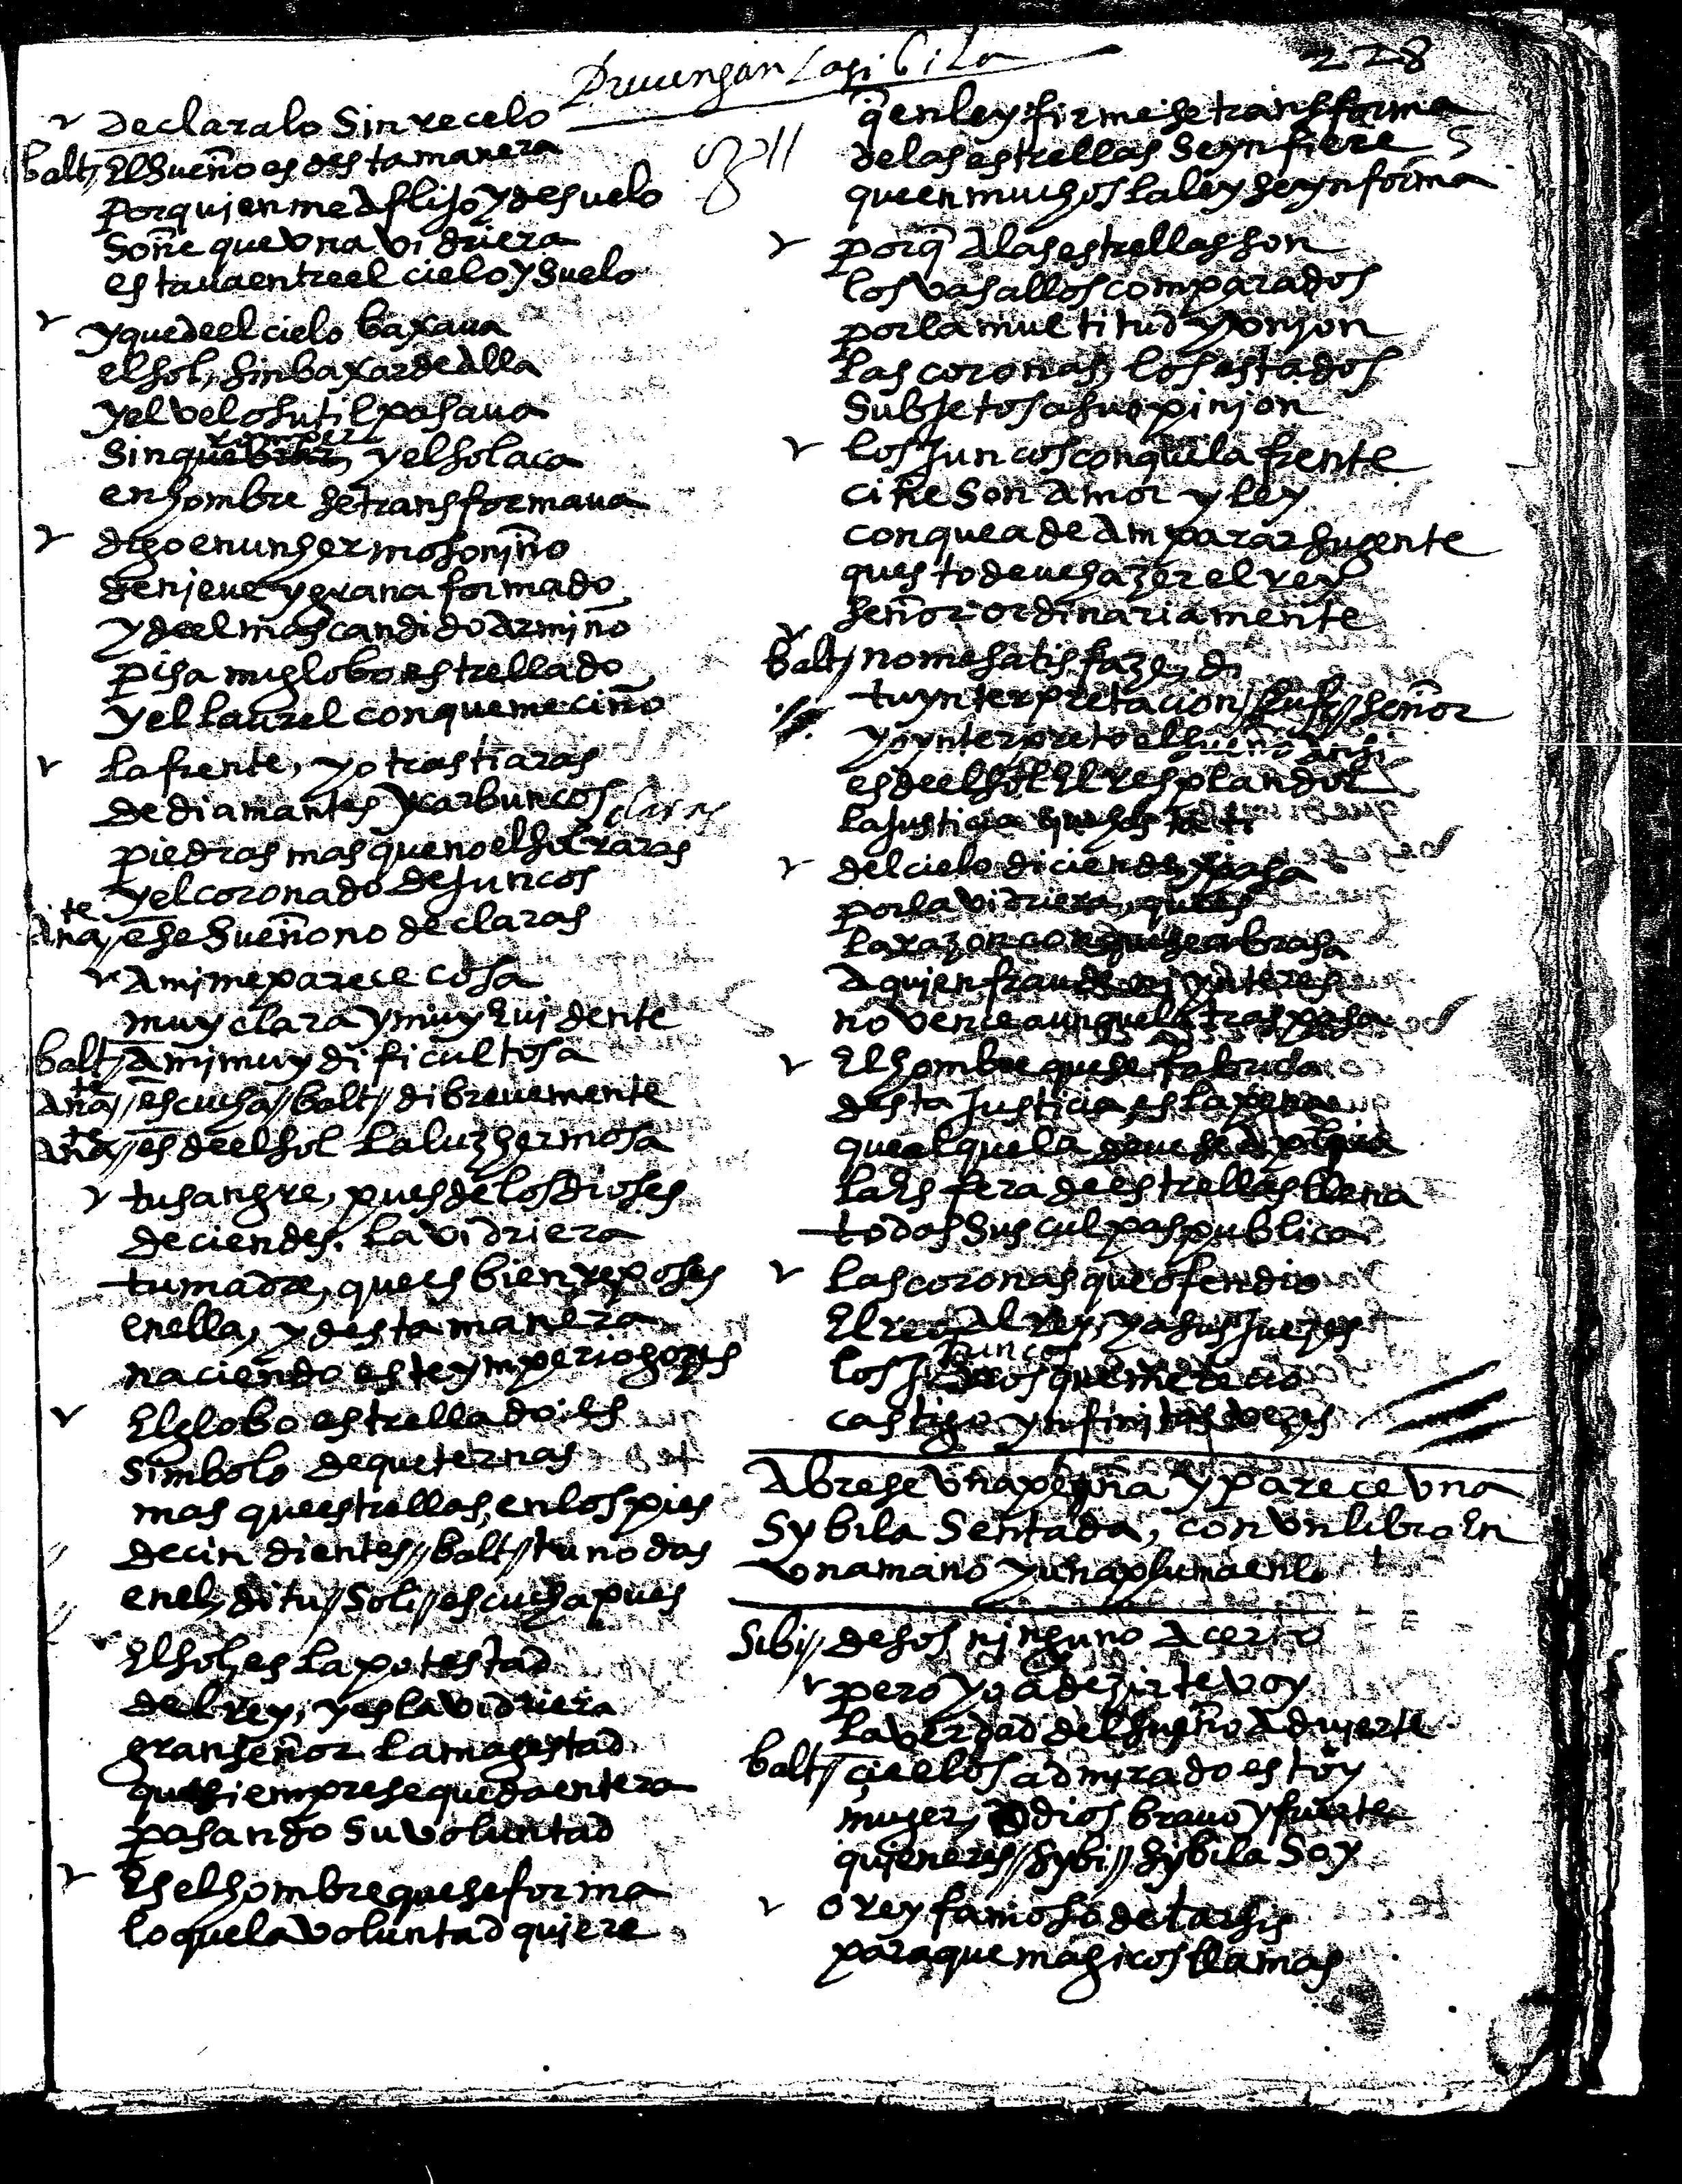 Preuengan la sibila
228
declaralo sin recelo
balt// El sueño es desta manera
por quien me aflijo y desuelo
soñe que vna vidriera
estaua entre el cielo y suelo
y que de el cielo baxaua
el sol, sin baxar de alla
y el velo sutil pasaua
sin romper y el sol aca
en hombre se transformaua
digo en un hermoso niño
de nieue y grana formado
y de el mas candido armiño
pisa mi globo estrellado
y el laurel con que me ciño
la frente, y otras tiaras
de diamantes y carbuncos claras
piedras mas que no el sol raras
y el coronado de juncos
Ana^te// ese sueño no declaras
A mi me parece cosa
muy clara y muy euidente
balt// A mi muy dificultosa
Ana^te// escucha// balt// di breuemente
Ana^te// es de el sol la luz hermosa
tu sangre, pues de los dioses
deciendes. la vidriera
tu madre, que es bien reposes
en ella, y desta manera
naciendo este ymperio gozes
El globo estrellado es
simbolo de que ternas
mas que estrellas, en los pies
decindientes// balt// tu no das
en el, di tu// Soli// escucha pues
El sol, es la potestad
del rey, y es la vidriera
gran señor la magestad
que siempre se queda entera
pasando su voluntad
Es el hombre que se forma
lo que la voluntad quiere
q̃ en ley firme se transforma
de las estrellas se ynfiere
que en muchos la ley se ynforma
porq̃ a las estrellas son
los vasallos comparados
por la multitud y vnion
las coronas, los estados
subjetos a su opinion
los juncos con que la frente
ciñe son amor y ley
con que a de amparar su gente
questo deue hazer el rey
señor ordinariamente
balt// no me satisfaze, di
tu ynterpretacion // señor
yo ynterpreto el sueño ansi
es de el sol el resplandor
la justicia
del cielo diciende, y pasa
por la vidriera, que es
la razon con que se abrasa
a quien fraude ni ynteres
no vence aunque la traspasa
El hombre que se fabrica
desta justicia es la pena
que al que la deue se aplica
la esfera de estrellas llena
todas sus culpas publica
las coronas que ofendio
El reo Al rey, y a sus juezes
los juncos que merecio
castigo ynfinitas vezes
Abrese vna peña y parece vna
Sybila sentada, con vn libro en
vna mano y una pluma en la
Sibi// desos ninguno acerto
pero yo a dezirte voy
la verdad del sueño aduierte
balt// cielos admirado estoy
muger, dios brauo y fuerte
quien eres// sybi// sybila soy
o rey famoso de tarsis
para que magicos llamas